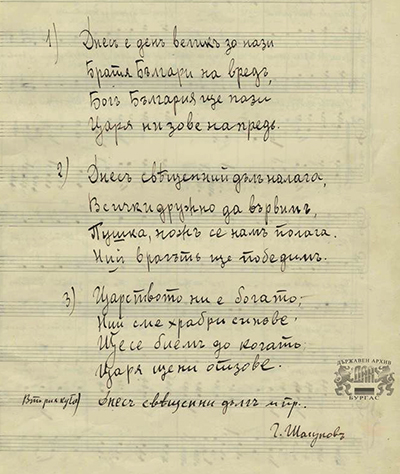 1) Днесъ е день великъ за нази
Братя Българи на вредъ,
Богъ България ще пази
Царя ни зове на предъ.
2) Днесъ свѣщенний дългъ налага,
Всички дружно да вървимъ,
Пушка, ножъ се намъ полага.
Ний врагътъ ще победимъ.
3) Царството ни е богато,
Ний сме храбри синове.
Ще се биемъ до когато
Царя ще ни отзове.
Днесъ свѣщенни дългъ и пр.
ДЪРЖАВЕН АРХИВ
БУРГАС